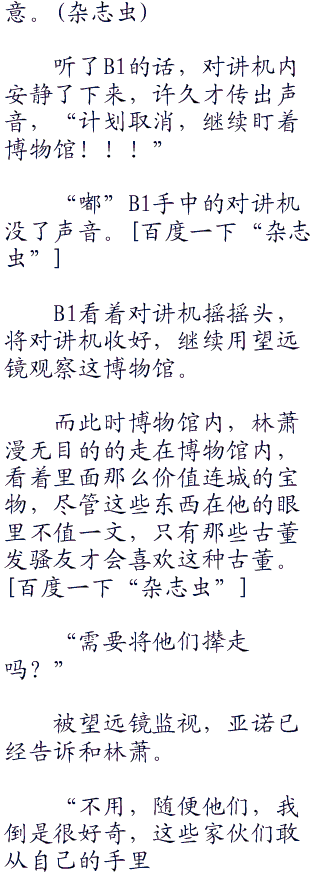 意。(杂志虫)
听了B1的话，对讲机内
安静了下来，许久才传出声
音，“计划取消，继续盯着
博物馆！！！”
“嘟”B1手中的对讲机
没了声音。[百度一下“杂志
虫”]
B1看着对讲机摇摇头，
将对讲机收好，继续用望远
镜观察这博物馆。
而此时博物馆内，林萧
漫无目的的走在博物馆内，
看着里面那么价值连城的宝
物，尽管这些东西在他的眼
里不值一文，只有那些古董
发骚友才会喜欢这种古董。
[百度一下“杂志虫”]
“需要将他们撵走
吗？”
被望远镜监视，亚诺已
经告诉和林萧。
“不用，随便他们，我
倒是很好奇，这些家伙们敢
从自己的手里